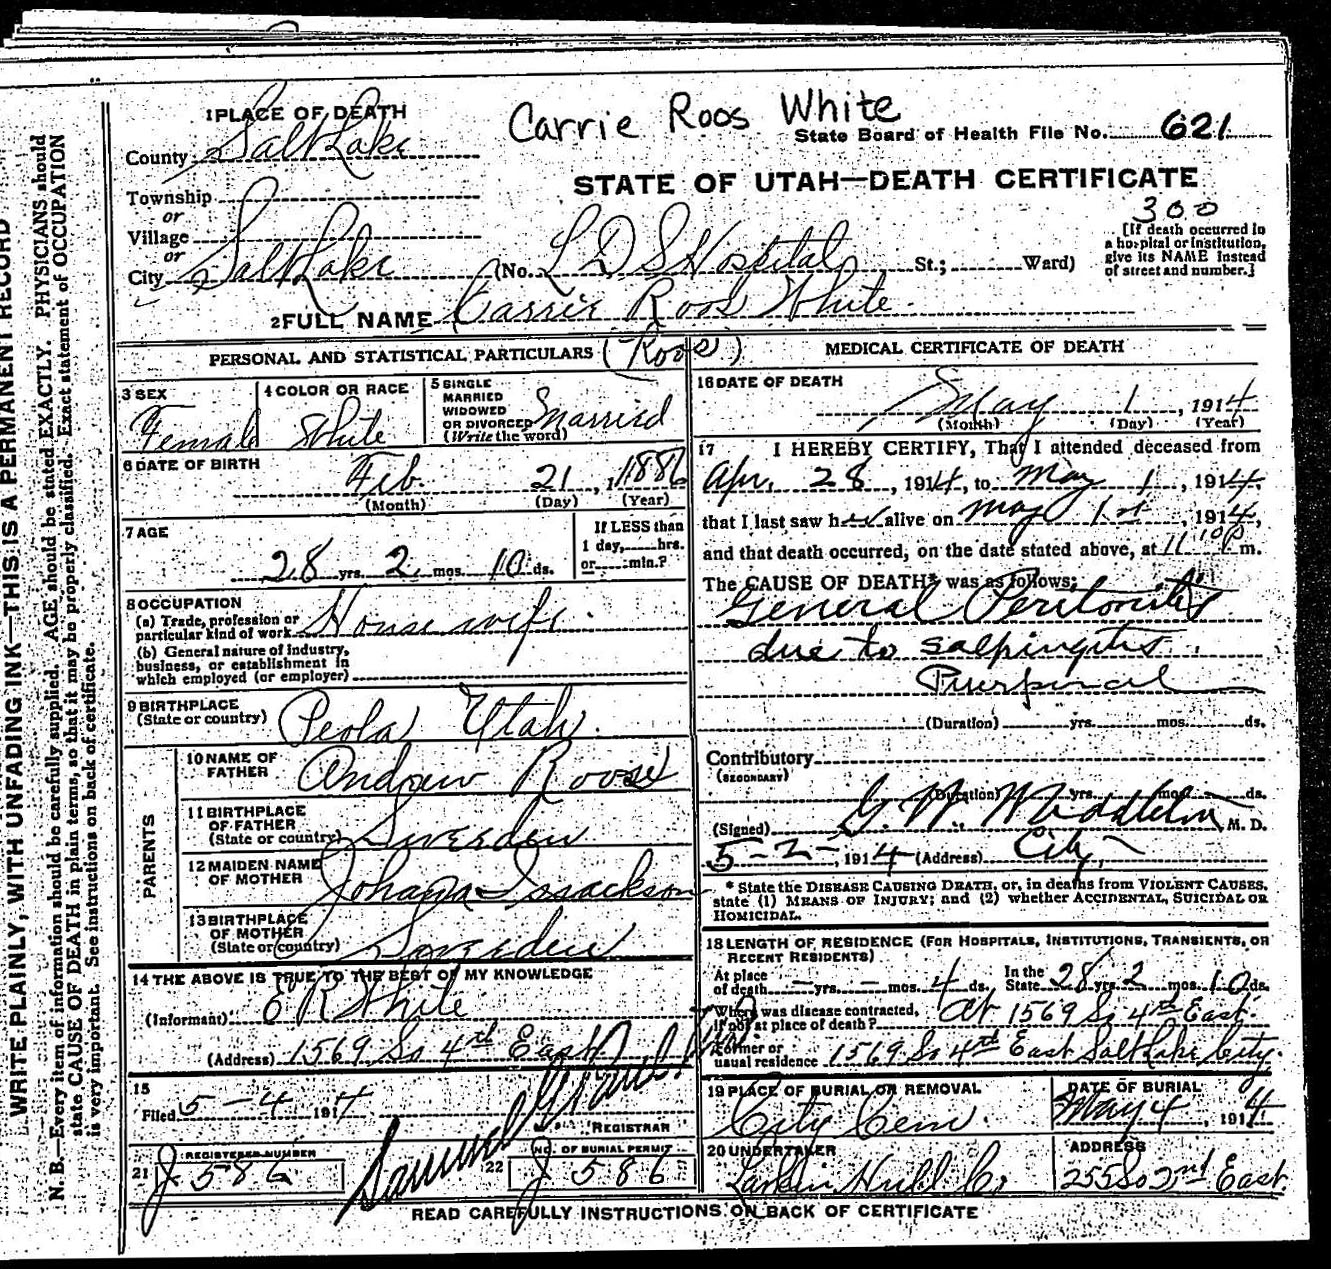 WRITE PLAINLY, WITH UNFADING INK—THIS IS A PERMANENT RECORD
N. B.—Every item of information should be carefully supplied. AGE should be stated EXACTLY. PHYSICIANS should
state CAUSE OF DEATH in plain terms, so that it may be properly classified. Exact statement of OCCUPATION
is very important. See instructions on back of certificate.
Carrie Roos White
1 PLACE OF DEATH
State Board of Health File No. 621
County Salt Lake
STATE OF UTAH—DEATH CERTIFICATE
300
Township
or
Village
or
City Salt Lake (No. L D S Hospital, St.; Ward)
[If death occurred in
a hospital or institution,
give its NAME instead
of street and number.]
2 FULL NAME Carrie Roos White
(Roos)
PERSONAL AND STATISTICAL PARTICULARS
3 SEX
Female
4 COLOR OR RACE
White
5 SINGLE
MARRIED
WIDOWED
OR DIVORCED
(Write the word)
Married
6 DATE OF BIRTH
Feb. 21, 1886
(Month) (Day) (Year)
7 AGE
28 yrs. 2 mos. 10 ds.
If LESS than
1 day, hrs.
or min.?
8 OCCUPATION
(a) Trade, profession or
particular kind of work Housewife.
(b) General nature of industry,
business, or establishment in
which employed (or employer)
9 BIRTHPLACE
(State or country) Peola Utah.
PARENTS
10 NAME OF
FATHER Andrew Roose
11 BIRTHPLACE
OF FATHER
(State or country) Sweeden
12 MAIDEN NAME
OF MOTHER Johana Issackson
13 BIRTHPLACE
OF MOTHER
(State or country) Sweeden
14 THE ABOVE IS TRUE TO THE BEST OF MY KNOWLEDGE
(Informant) E R White
(Address) 1569 So 4th East
15
Filed 5-4 1914
Samuel G Paul
REGISTRAR
21 REGISTERED NUMBER
J 586
22 NO. OF BURIAL PERMIT
J 586
MEDICAL CERTIFICATE OF DEATH
16 DATE OF DEATH
May 1, 1914
(Month) (Day) (Year)
17 I HEREBY CERTIFY, That I attended deceased from
Apr. 28, 1914, to May 1, 1914.
that I last saw her alive on May 1st, 1914,
and that death occurred, on the date stated above, at 11 10 P m.
The CAUSE OF DEATH* was as follows:
General Peritonitis
due to salpingitis.
Puerperal
(Duration) yrs. mos. ds.
Contributory
(SECONDARY)
(Duration) yrs. mos. ds.
(Signed) G. W. Middleton M. D.
5-2-, 1914 (Address) City
* State the DISEASE CAUSING DEATH, or, in deaths from VIOLENT CAUSES,
state (1) MEANS OF INJURY; and (2) whether ACCIDENTAL, SUICIDAL OR
HOMICIDAL.
18 LENGTH OF RESIDENCE (FOR HOSPITALS, INSTITUTIONS, TRANSIENTS, OR
RECENT RESIDENTS)
At place
of death — yrs. — mos. 4 ds.
In the
State 28 yrs. 2 mos. 10 ds.
Where was disease contracted,
if not at place of death? At 1569 So 4th East.
Former or
usual residence 1569 So 4th East Salt Lake City.
19 PLACE OF BURIAL OR REMOVAL
City Cem.
DATE OF BURIAL
May 4, 1914
20 UNDERTAKER
Larkin Hull Co.
ADDRESS
255 So 2nd East.
READ CAREFULLY INSTRUCTIONS ON BACK OF CERTIFICATE